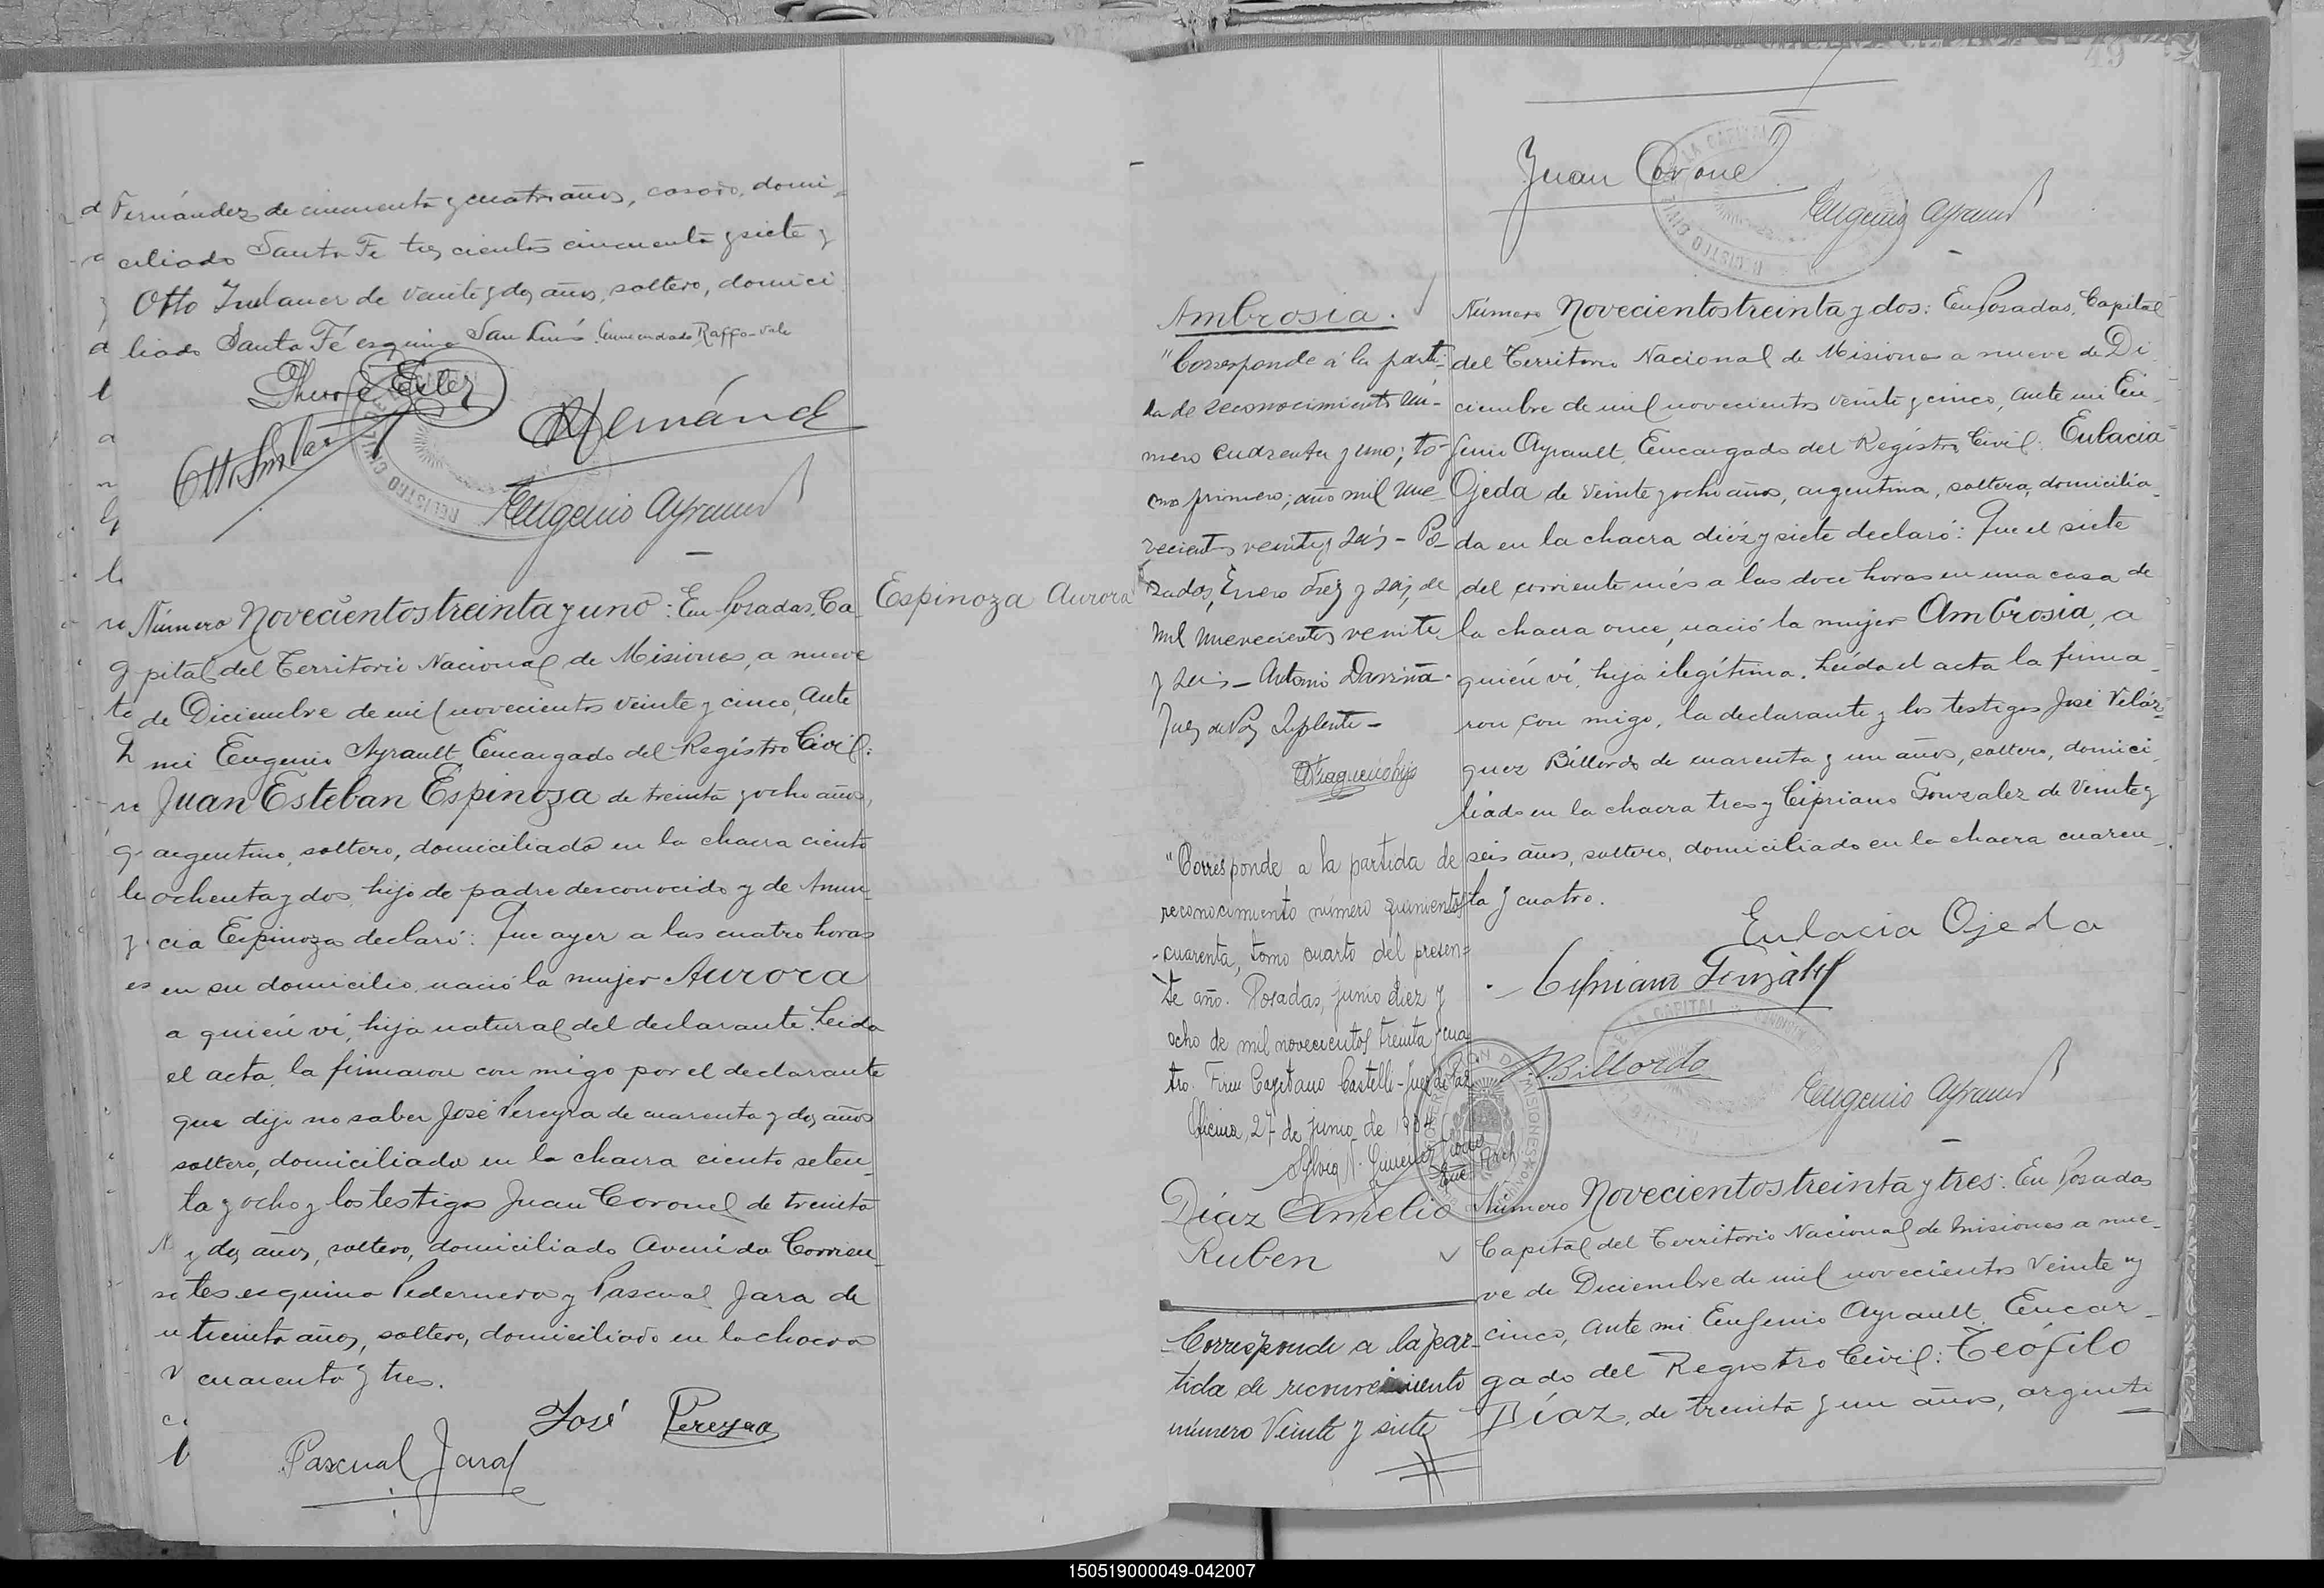 Fernández de cincuenta y cuatro años, casado, domi-
ciliado Santa Fe tres cientos cincuenta y siete y
Otto de veinte y dos años, soltero, domici
liado Santa Fé esquina San Luis. Enmendado Raffo-vale
Hernández
Eugenio Ayrault
Número Novecientos treinta y uno: En Posadas, Ca-
pital del Territorio Nacional de Misiones, a nueve
de Diciembre de mil novecientos veinte y cinco, ante
mi Eugenio Ayrault Encargado del Registro Civil:
Juan Esteban Espinoza de treinta y ocho años,
argentino, soltero, domiciliado en la chacra ciento
ochenta y dos, hijo de padre desconocido y de Anun-
cia Espinoza declaró: Que ayer a las cuatro horas
en su domicilio, nació la mujer Aurora
a quién ví, hija natural del declarante. Leida
el acta, la firmaron con migo por el declarante
que dijo no saber José Pereyra de cuarenta y dos años
soltero, domiciliado en la chacra ciento seten-
ta y ocho y los testigos Juan Coronel de treinta
y dos años, soltero, domiciliado Avenida Corrien-
tes esquina Pedernera y Pascual Jara de
treinta años, soltero, domiciliado en la chacra
cuarenta y tres.
José Pereyra
Pascual Jara
Espinoza Aurora
19
Juan Coronel
Eugenio Ayrault
Ambrosia.
"Corresponde a la parti-
da de reconocimiento nú-
mero cuarenta y uno; to-
mo primero; año mil nue-
vecientos veinte y seis - Po-
sadas, Enero diez y seis de
mil nuevecientos veinte
y seis - Antonio Daviña.
Juez de Paz Suplente -
"Corresponde a la partida de
reconocimiento número quinientos
cuarenta, tomo cuarto del presen=
te año. Posadas, junio diez y
ocho de mil novecientos treinta y cua
tro. Firm Cayetano Castelli-Juez de Paz
Oficina, 27 de junio de 1934
Número Novecientos treinta y dos: En Posadas, Capital
del Territorio Nacional de Misiones a nueve de Di-
ciembre de mil novecientos veinte y cinco, ante mi Eu-
genio Ayrault, Encargado del Registro Civil: Eulacia
Ojeda de veinte y ocho años, argentina, soltera, domicilia-
da en la chacra diez y siete declaró: Que el siete
del corriente més a las doce horas en una casa de
la chacra once, nació la mujer Ambrosia, a
quién ví, hija ilegítima. Leída el acta la firma-
ron con migo, la declarante y los testigos José Veláz-
quez Billordo de cuarenta y un años, soltero, domici-
liado en la chacra tres y Cipriano Gonzalez de veinte y
seis años, soltero, domiciliado en la chacra cuaren-
ta y cuatro.
Eulacia Ojeda
Cipriano González
Billordo
Eugenio Ayrault
Díaz Amelio
Ruben
Corresponde a la par-
tida de reconocimiento
número Veinte y siete
Número Novecientos treinta y tres: En Posadas
Capital del Territorio Nacional de Misiones a nue-
ve de Diciembre de mil novecientos veinte y
cinco, ante mi Eugenio Ayrault, Encar-
gado del Registro Civil: Teófilo
Díaz, de treinta y un años, argenti
150519000049-042007